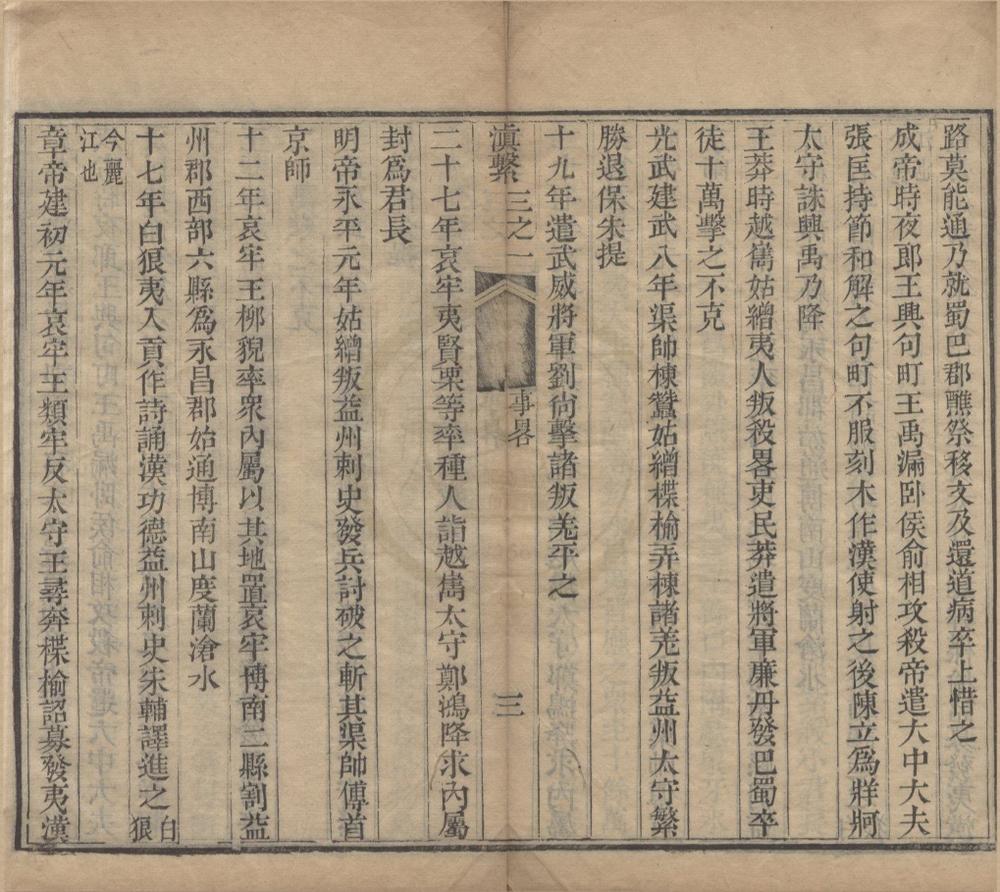 路莫能通乃就蜀巴郡醮祭移文及還道病卒上惜之
成帝時夜郎王興句町王禹漏卧侯俞相攻殺帝遣大中大夫
張匡持節和解之句町不服刻木作漢使射之後陳立爲牂牁
太守誅興禹乃降
王莽時越嶲姑繒夷人叛殺畧吏民莽遣將軍廉丹發巴蜀卒
徒十萬擊之不克
光武建武八年渠帥棟蠶姑繒楪榆弄棟諸羌叛益州太守繁
勝退保朱提
十九年遣武威將軍劉尙擊諸叛羌平之
滇繫 三之一 事畧 三
二十七年哀牢夷賢栗等率種人詣越嶲太守鄭鴻降求內屬
封爲君長
明帝永平元年姑繒叛益州刺史發兵討破之斬其渠帥傳首
京師
十二年哀牢王柳貌率衆內屬以其地置哀牢博南二縣割益
州郡西部六縣爲永昌郡始通博南山度蘭滄水
十七年白狼夷入貢作詩誦漢功德益州刺史朱輔譯進之白狼
今麗江也
章帝建初元年哀牢王類牢反太守王尋奔楪榆詔募發夷漢